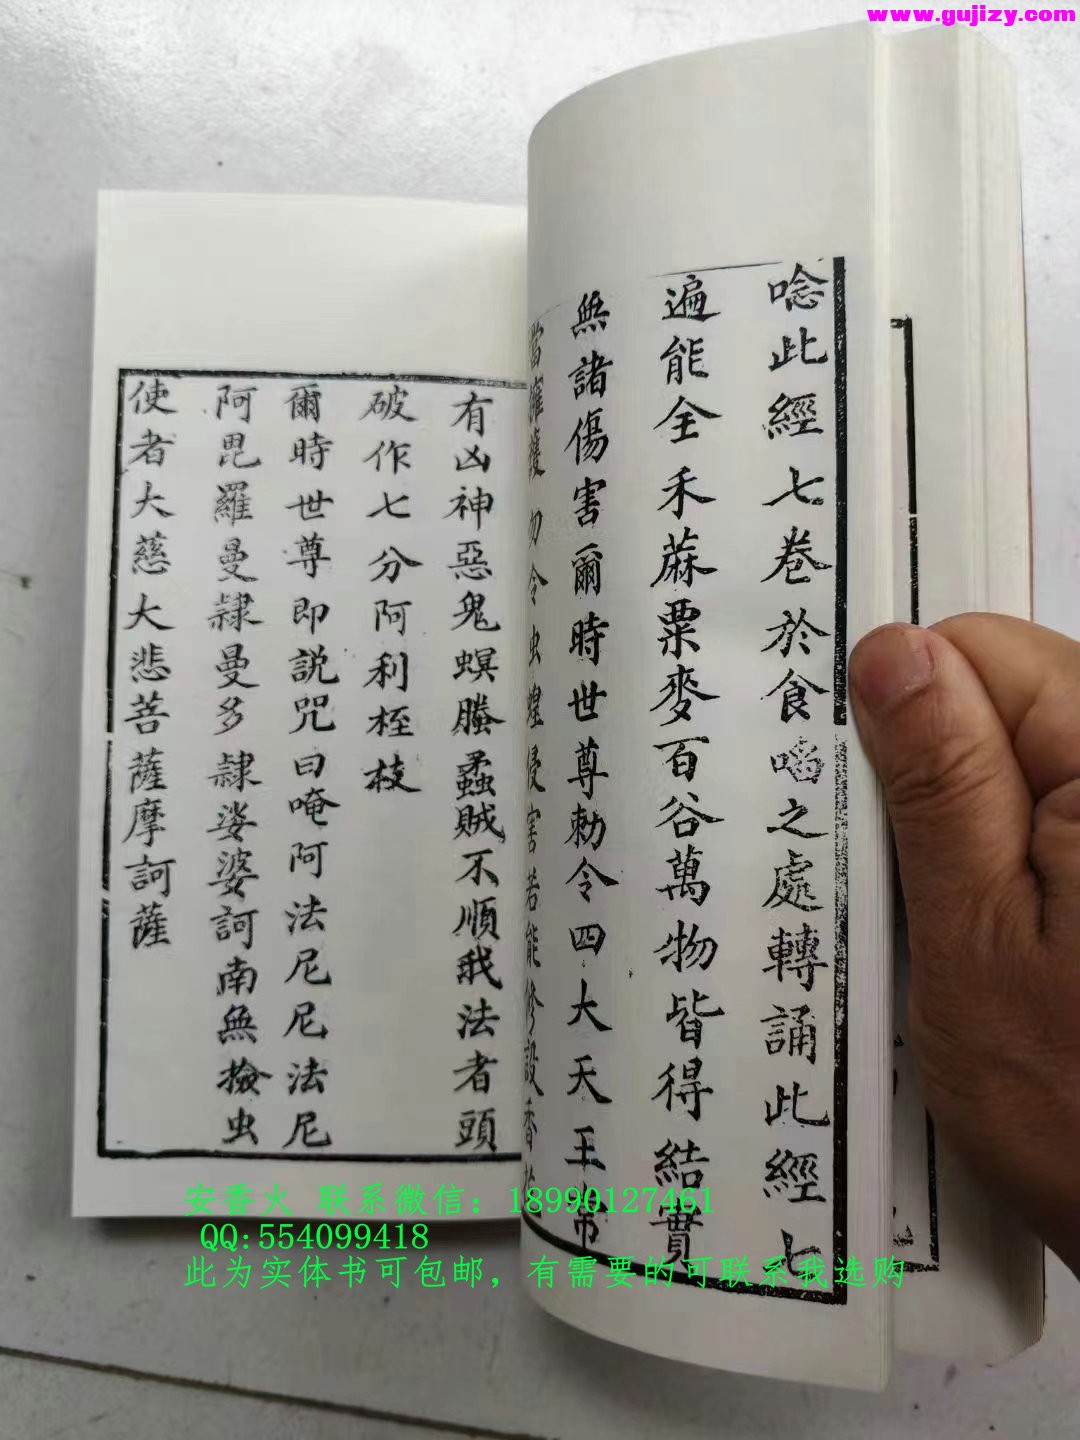 www.gujizy.com
唸此經七卷於食啗之處轉誦此經七
遍能全禾蔴粟麥百谷萬物皆得結實
無諸傷害爾時世尊勅令四大天王常
當擁護勿令虫蝗侵害若能修設香
有凶神惡鬼螟螣蟊賊不順我法者頭
破作七分阿利桎枝
爾時世尊即説咒曰唵阿法尼尼法尼
阿毘羅曼隷曼多隷娑婆訶南無撿虫
使者大慈大悲菩薩摩訶薩
安香火 联系微信：18990127461
QQ:554099418
此为实体书可包邮，有需要的可联系我选购